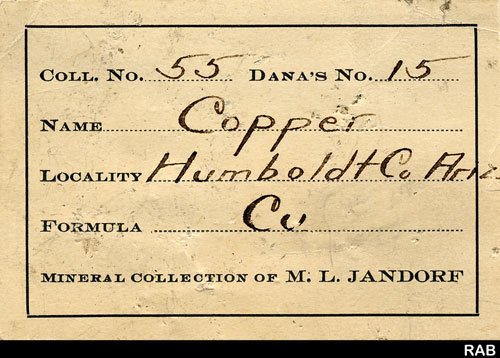 COLL. NO. 55 DANA'S NO. 15
NAME Copper
LOCALITY Humboldt Co Ariz
FORMULA Cu
MINERAL COLLECTION OF M. L. JANDORF
RAB